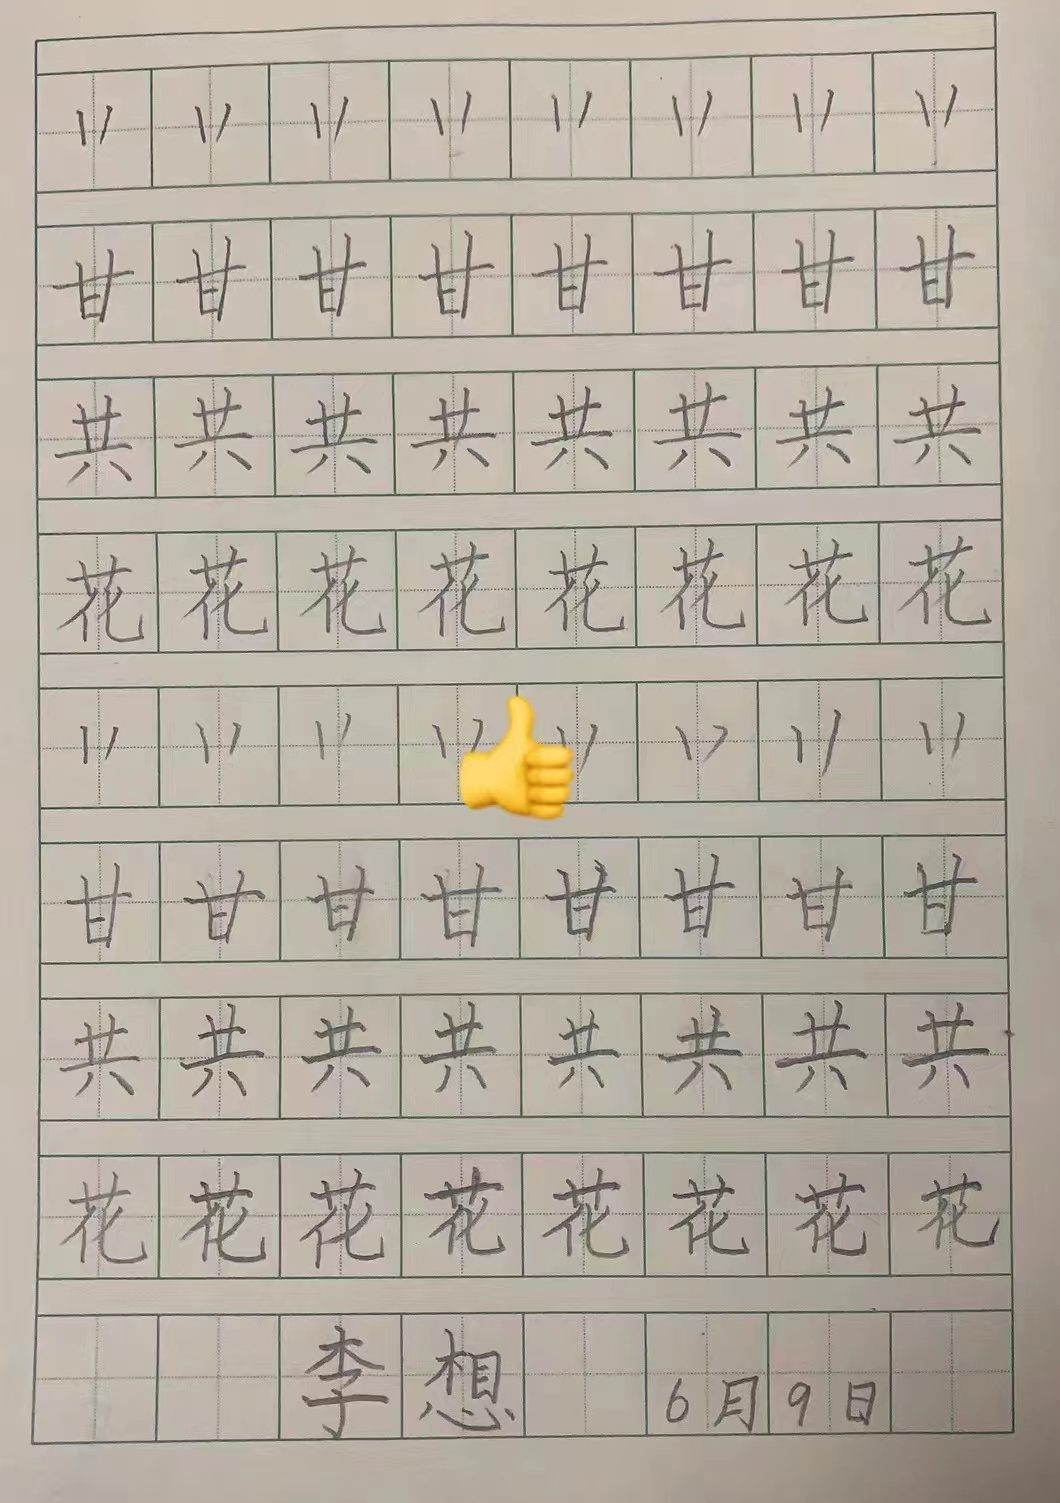 丷 丷 丷 丷 丷 丷 丷 丷
甘 甘 甘 甘 甘 甘 甘 甘
共 共 共 共 共 共 共 共
花 花 花 花 花 花 花 花
丷 丷 丷 丷 丷 丷 丷 丷
甘 甘 甘 甘 甘 甘 甘 甘
共 共 共 共 共 共 共 共
花 花 花 花 花 花 花 花
李 想 6月9日